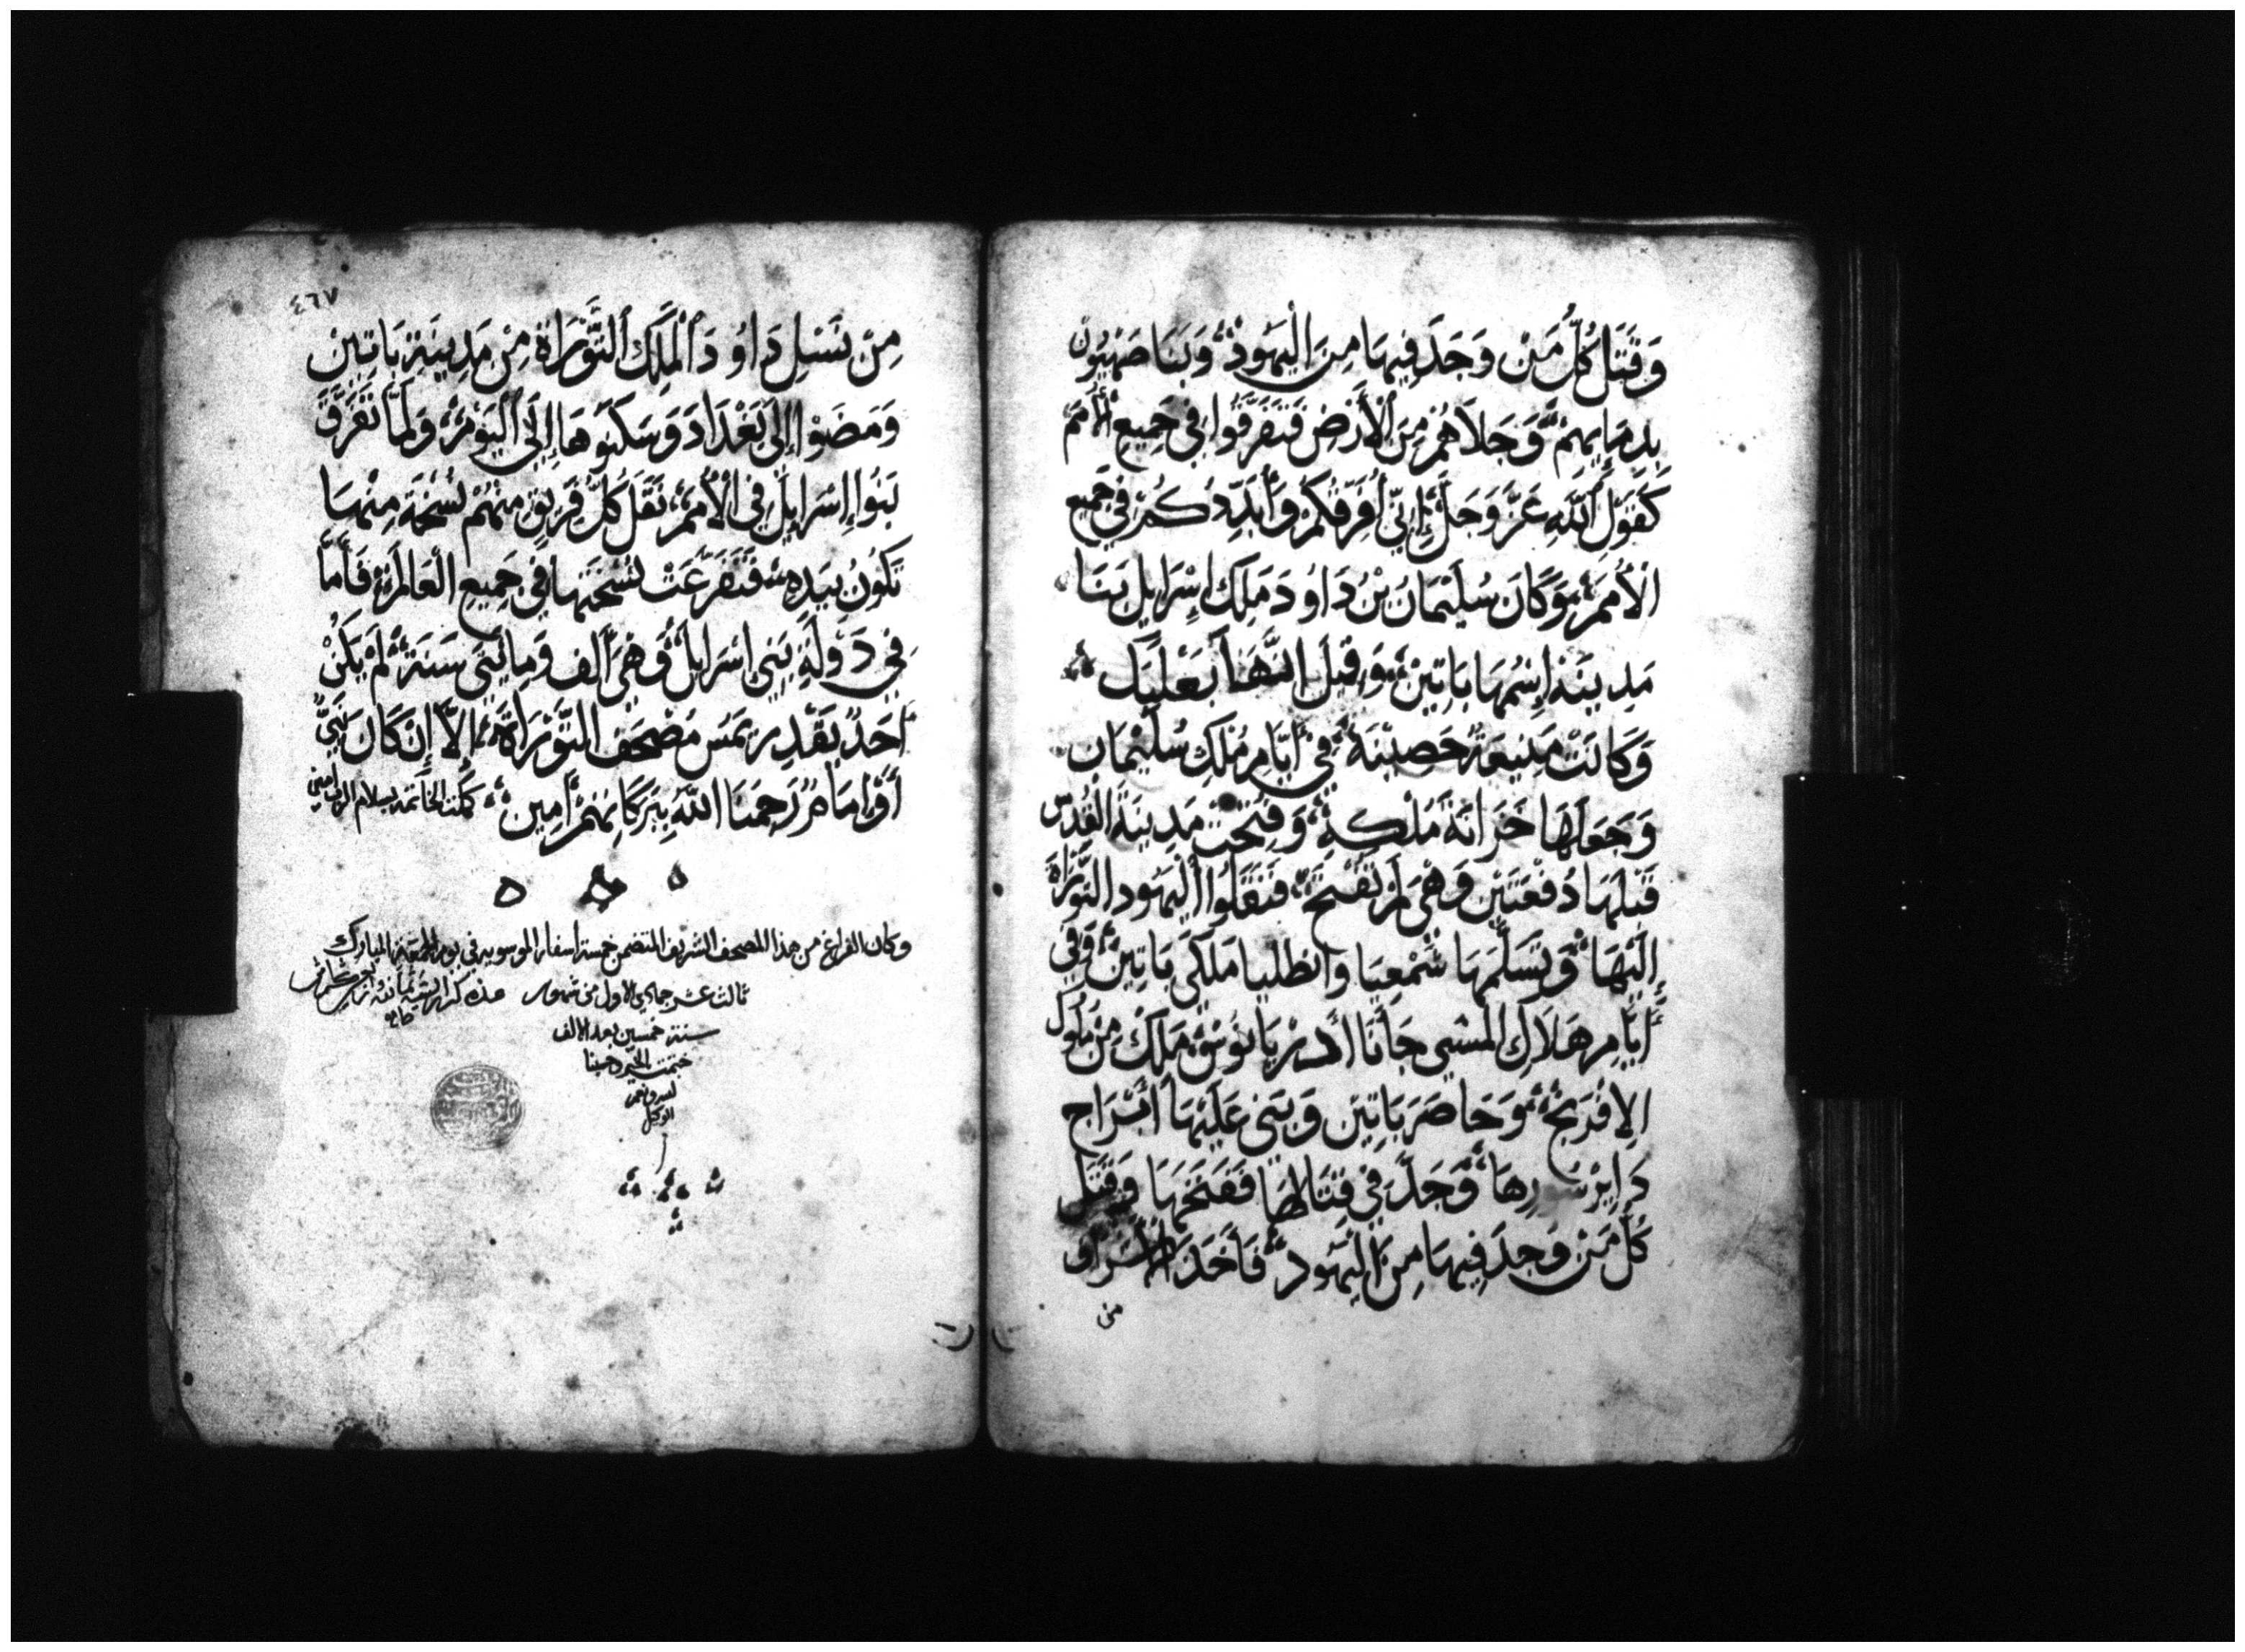 وَقَتَلَ كُلَّ مَنْ وَجَدَ فِيهَا مِنَ الْيَهُودْ وَبَنَا صَهْيُون
بِدِمَايِهِمْ وَجَلَاهُمْ مِنَ الْأَرْضِ فَتَفَرَّقُوا فِي جَمِيعِ الْأُمَمْ
كَقَوْلِ اللَّهِ عَزَّ وَجَلَّ إِنِّي أُفَرِّقُكُمْ وَأُبَدِّدُكُمْ فِي جَمِيع
الْأُمَمْ وَكَانَ سُلَيْمَانُ بْنُ دَاوُدَ مَلِكَ إِسْرَايِل بَنَا
مَدِينَة إِسْمُهَا بَاتِينْ وَقِيلَ انَّهَا بَعْلَبَك
وَكَانَتْ مَنِيعَةً حَصِينَةً فِي أَيَّامِ مُلْكِ سُلَيْمَان
وَجَعَلَهَا خَزَانَةَ مُلْكِهِ وَفُتِحَتْ مَدِينَةُ الْقُدْس
قَبْلَهَا دُفْعَتَيْن وَهْيَ لَمْ تُفْتَحْ فَنَقَلُوا الْيَهُود التَّوْرَاةَ
إِلَيْهَا وَتَسَلَّمَهَا شَمْعِيَا وَانطليا مَلَكَي بَاتِينْ وَفِي
أَيَّامِ هَلَاكِ الْمَسْبِي جَانَا أَدْرِيَانُوسْ مَلِكْ مِنْ مُلُوك
الإِفْرَنجْ وَحَاصَرَ بَاتِين وَبَنَى عَلَيْهَا أَبْرَاج
دَايِرْ سُورِهَا وَجَدَّ فِي قِتَالِهَا فَفَتَحَهَا وَقَتَل
كُلَّ مَنْ وَجَدَ فِيهَا مِنَ الْيَهُودْ فَأَخَذَ الْأُسَرَاؤ
من
٤٦٧
مِنْ نَسْلِ دَاوُدَ الْمَلِك التَّوْرَاةَ مِنْ مَدِينَةِ بَاتِينْ
وَمَضَوْا إِلَى بَغْدَادَ وَسَكَنُوهَا إِلَى الْيَوْمْ وَلَمَّا تَفَرَّقَ
بَنُوا إِسْرَايِلْ فِي الْأُمَمْ نَقَلَ كُلُّ فَرِيقٍ مِنْهُمْ نُسْخَة مِنْهَا
تَكُونُ بِيَدِهِ فَتَفَرَّعَتْ نُسْخَتِهَا فِي جَمِيعِ الْعَالَمْ فَأَمَّا
فِي دَوْلَةِ بَنِي اسْرَايِلْ وَهِيَ أَلف وَمِايَتَي سَنَةْ لَمْ يَكُنْ
أَحَدٌ يَقْدِر يَمَسّ مَصْحَف التَّوْرَاةْ إِلَّا إِنْ كَانَ نَبِيٌّ
أَوْ إِمَامٌ رَحِمَنَا اللَّهُ بِبَرَكَاتِهِمْ أَمِينْ كملت الخاتمة بسلام الرب امين
وكان الفراغ من هذا المصحف الشريف المتضمن خمسة اسفار الموسويه في يوم الجمعة المبارك
ثالث عشر جمادي الاول من شهور
سنة خمسين بعد الالف
الوكيل